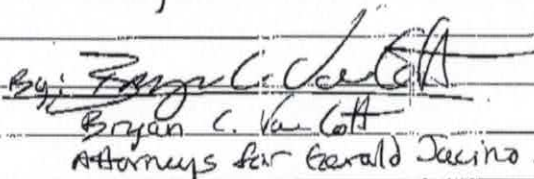 By: Bryan C. Van Cott
Bryan C. Van Cott
Attorneys for Gerald Jacino